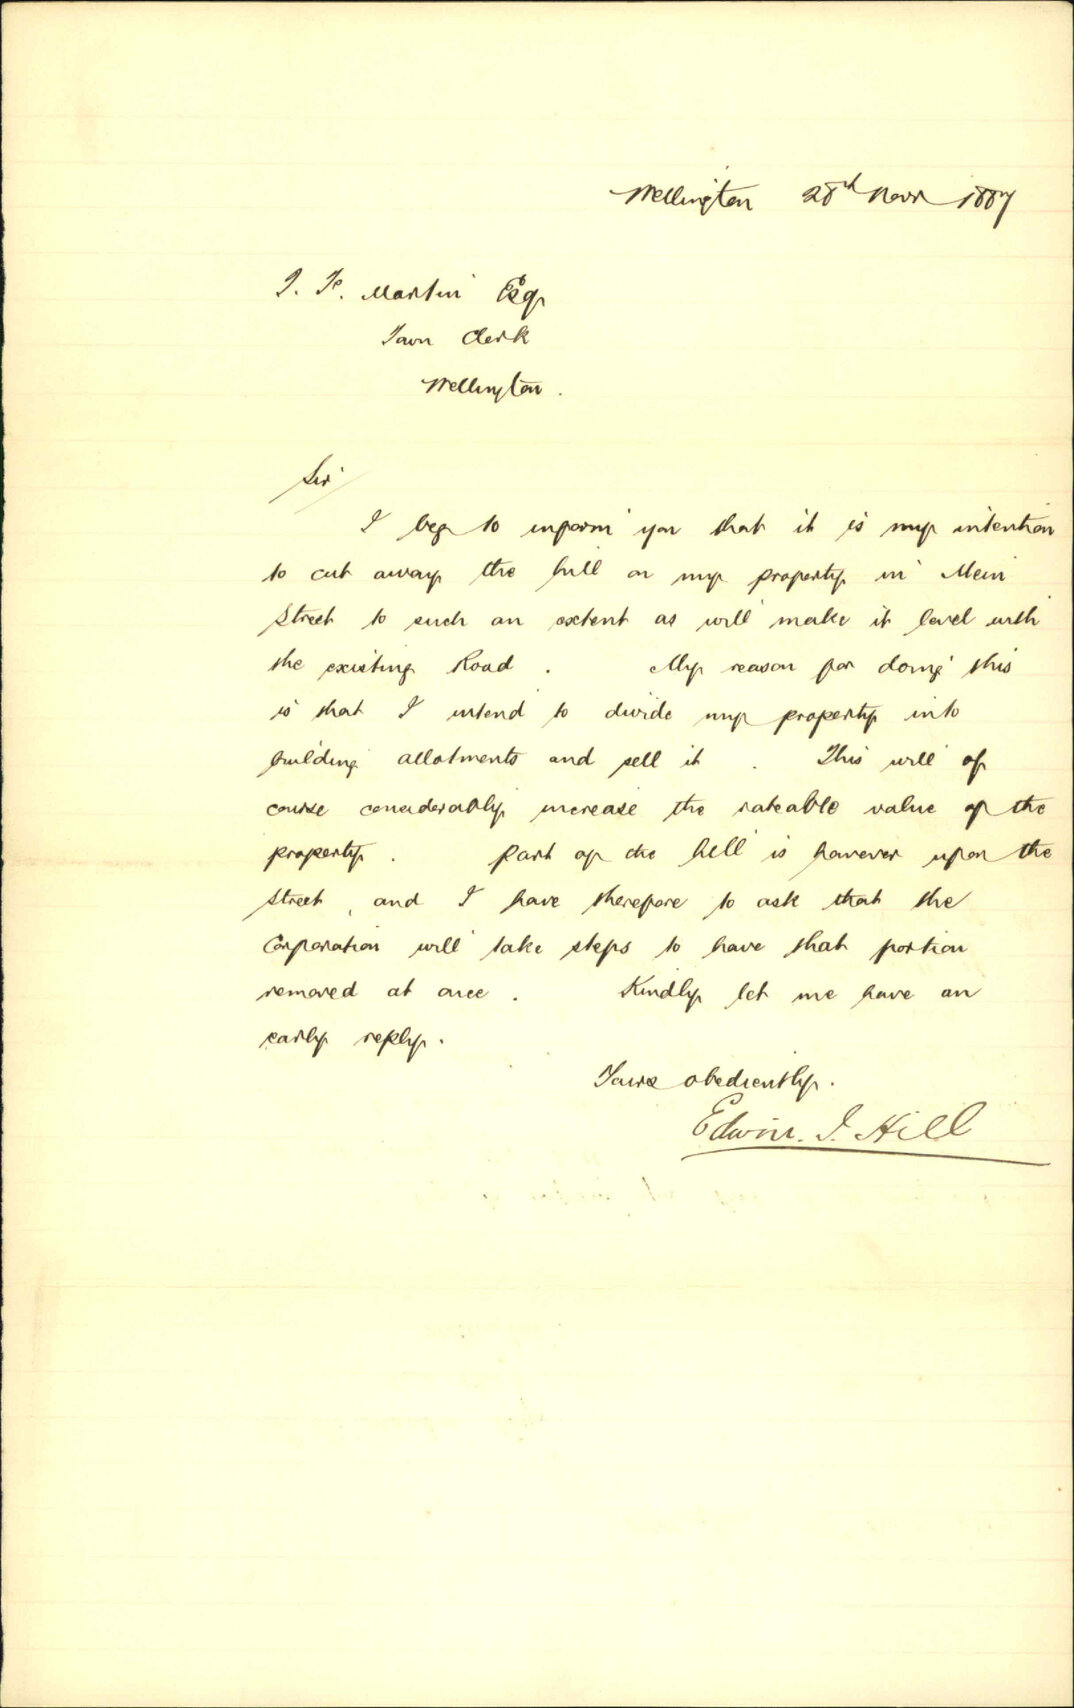 Wellington 28th Novr 1887
J. F. Martin Esqr
Town Clerk
Wellington.
Sir
I beg to inform you that it is my intention
to cut away the hill on my property in Mein
Street to such an extent as will make it level with
the existing Road. My reason for doing this
is that I intend to divide my property into
building allotments and sell it. This will of
course considerably increase the rateable value of the
property. Part of the hill is however upon the
street, and I have therefore to ask that the
Corporation will take steps to have that portion
removed at once. Kindly let me have an
early reply.
Yours obediently.
Edwin. J. Hill